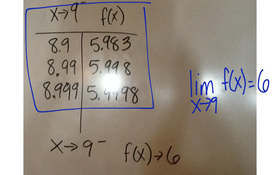 x→9⁻ f(x)
8.9 5.983
8.99 5.998
8.999 5.9998
lim f(x)=6
x→9
x→9⁻ f(x)→6